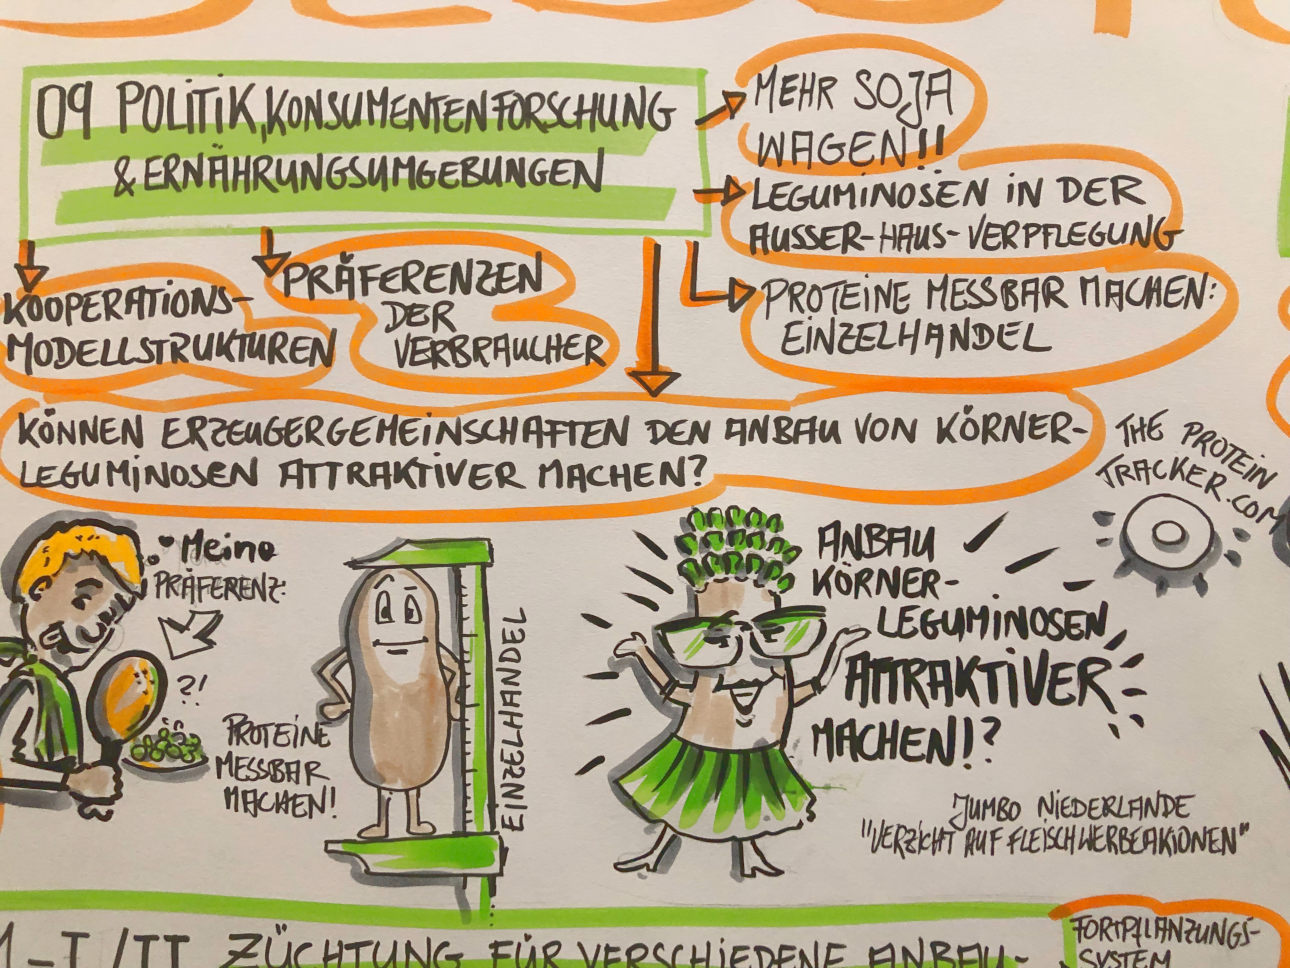 09 POLITIK, KONSUMENTENFORSCHUNG
& ERNÄHRUNGSUMGEBUNGEN
MEHR SOJA
WAGEN!!
LEGUMINOSEN IN DER
AUSSER-HAUS-VERPFLEGUNG
PROTEINE MESSBAR MACHEN:
EINZELHANDEL
KOOPERATIONS-
MODELLSTRUKTUREN
PRÄFERENZEN
DER
VERBRAUCHER
KÖNNEN ERZEUGERGEMEINSCHAFTEN DEN ANBAU VON KÖRNER-
LEGUMINOSEN ATTRAKTIVER MACHEN?
THE PROTEIN
TRACKER.COM
Meine
PRÄFERENZ:
?!
PROTEINE
MESSBAR
MACHEN!
EINZELHANDEL
ANBAU
KÖRNER-
LEGUMINOSEN
ATTRAKTIVER
MACHEN!?
JUMBO NIEDERLANDE
"VERZICHT AUF FLEISCHWERBEAKIONEN"
-I/II ZÜCHTUNG FÜR VERSCHIEDENE ANBAU-
FORTPFLANZUNGS-
SYSTEM